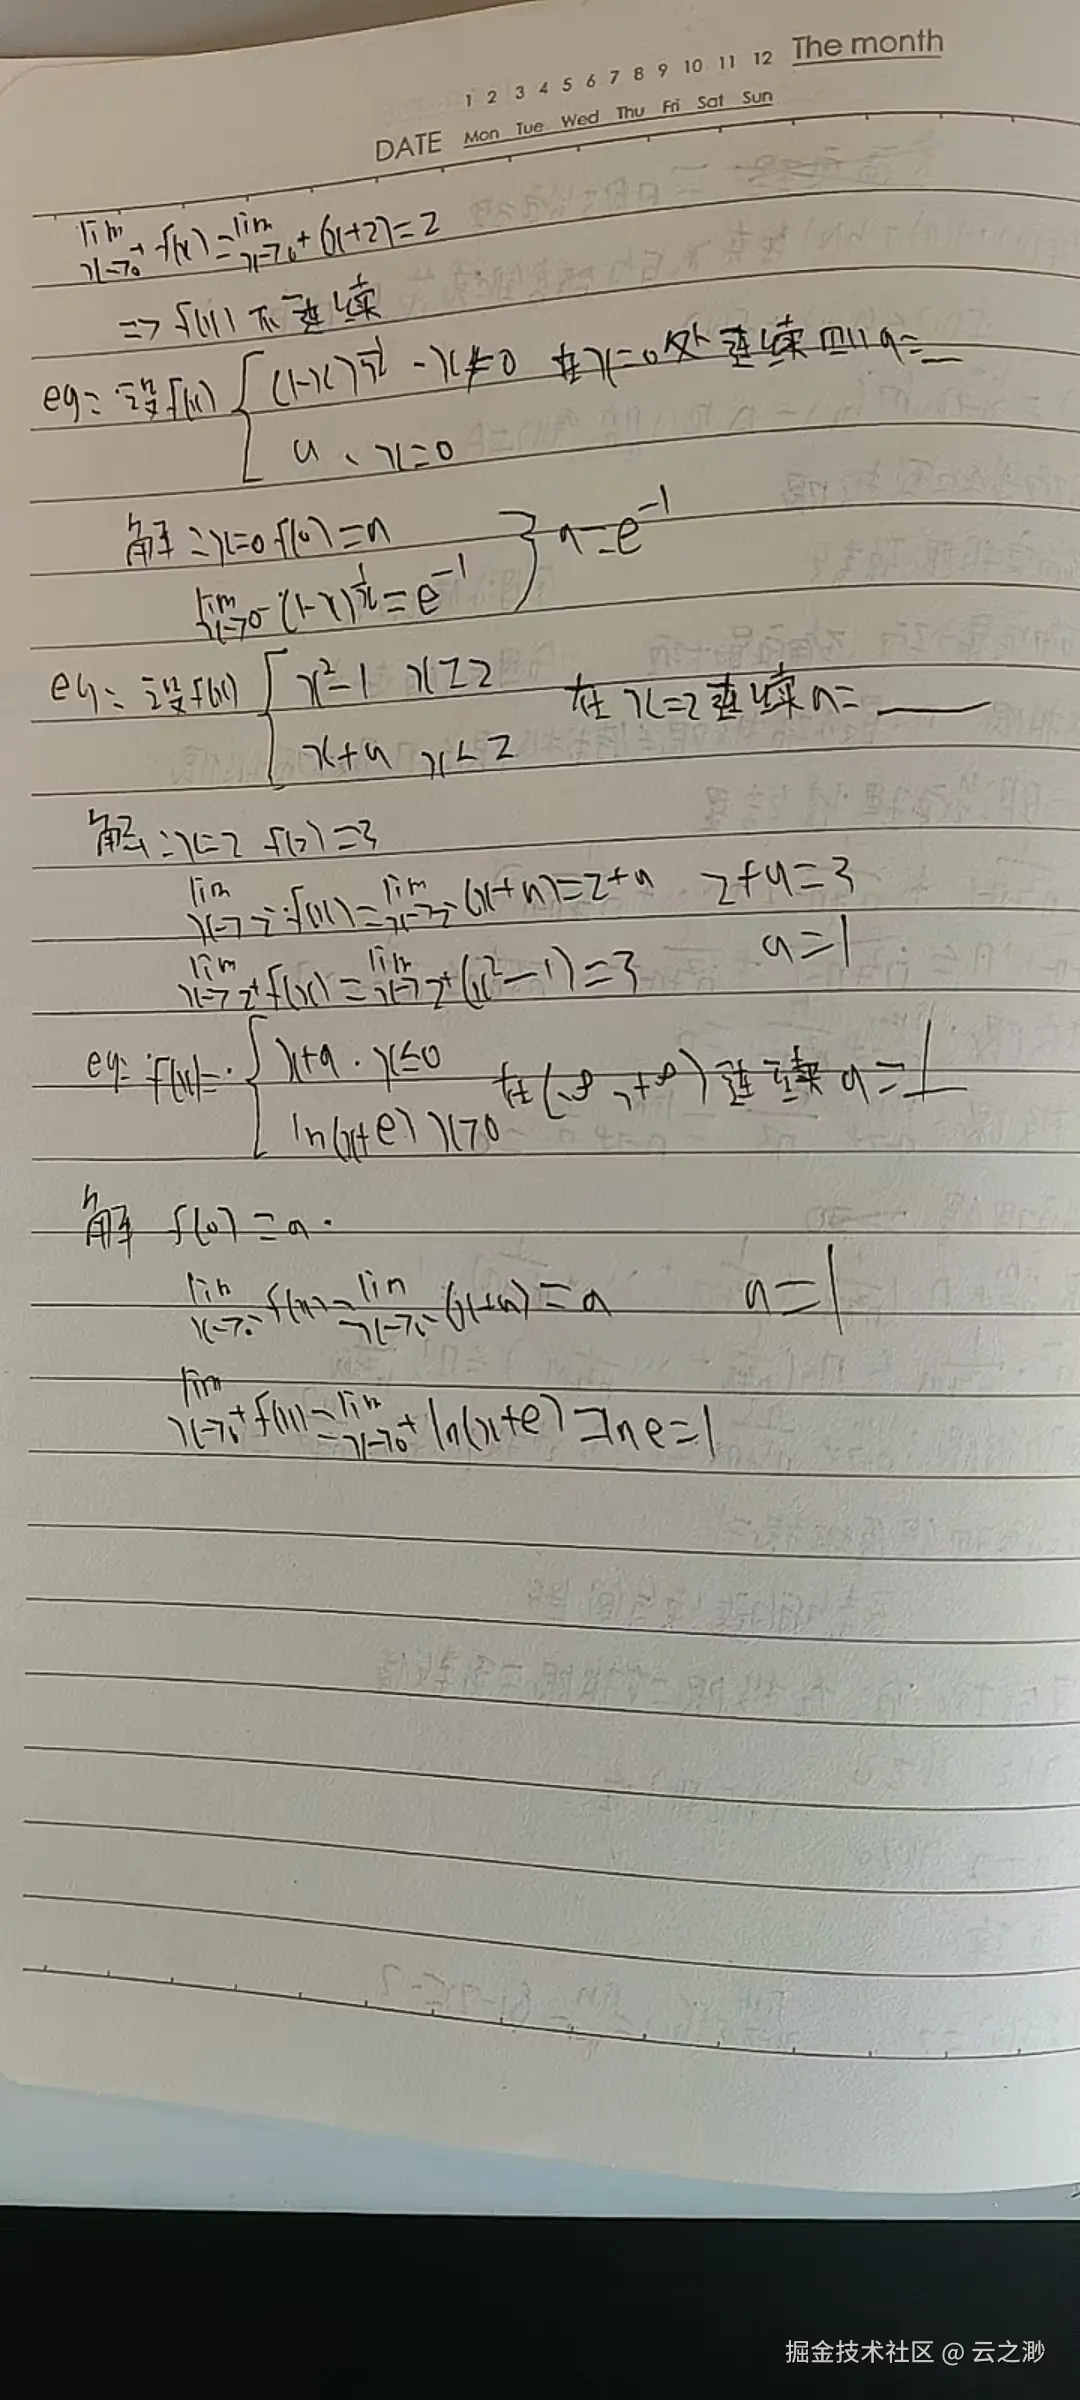 1 2 3 4 5 6 7 8 9 10 11 12 The month
DATE Mon Tue Wed Thu Fri Sat Sun
lim x→0⁺ f(x)=lim x→0⁺ (x+2)=2
=> f(x) 不连续
eg: 设f(x) { (1-x)^(1/x) , x≠0 在x=0处连续 则 a=__
a 、x=0
解:x=0 f(0)=a } a=e⁻¹
lim x→0 (1-x)^(1/x)=e⁻¹
eg: 设f(x) { x²-1 x≥2 在 x=2连续 a=____
x+a x<2
解:x=2 f(2)=3
lim x→2⁻ f(x)=lim x→2⁻ (x+a)=2+a 2+a=3
lim x→2⁺ f(x)=lim x→2⁺ (x²-1)=3 a=1
eg: f(x)= { x+a . x≤0 在(-∞,+∞) 连续 a=1
ln(x+e) x>0
解 f(0)=a.
lim x→0⁻ f(x)=lim x→0⁻ (x+a)=a a=1
lim x→0⁺ f(x)=lim x→0⁺ ln(x+e)=ln e=1
掘金技术社区 @ 云之渺